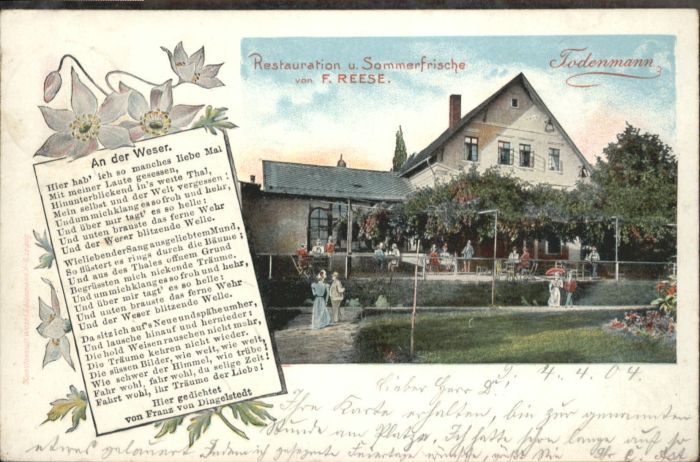 Restauration u. Sommerfrische
von F. REESE.
Todenmann
An der Weser.
Hier hab' ich so manches liebe Mal
Mit meiner Laute gesessen,
Hinunterblickend in's weite Thal,
Mein selbst und der Welt vergessen:
Und um mich klang es so froh und hehr,
Und über mir tagt' es so helle:
Und unten brauste das ferne Wehr
Und der Weser blitzende Welle.
Wie liebender Sang aus geliebtem Mund,
So flüstert es rings durch die Bäume;
Und aus des Thal's offnem Grund
Begrüssten mich nickende Träume.
Und um mich klang es so froh und hehr,
Und über mir tagt' es so helle:
Und unten brauste das ferne Wehr
Und der Weser blitzende Welle.
Da sitz ich auf's Neue und spähe umher,
Und lausche hinauf und hernieder:
Die hold Weisen rauschen nicht mehr,
Die Träume kehren nicht wieder.
Die süssen Bilder, wie weit, wie weit,
Wie schwer der Himmel, wie trübe!
Fahr wohl, fahr wohl, du selige Zeit!
Fahrt wohl, ihr Träume der Liebe!
Hier gedichtet
von Franz von Dingelstedt
4. 4. 04.
Lieber Herr
Ihre Karte erhalten, bin zur genannten
Stunde am Platze. Ich hatte schon lange auf so
etwas gelauert